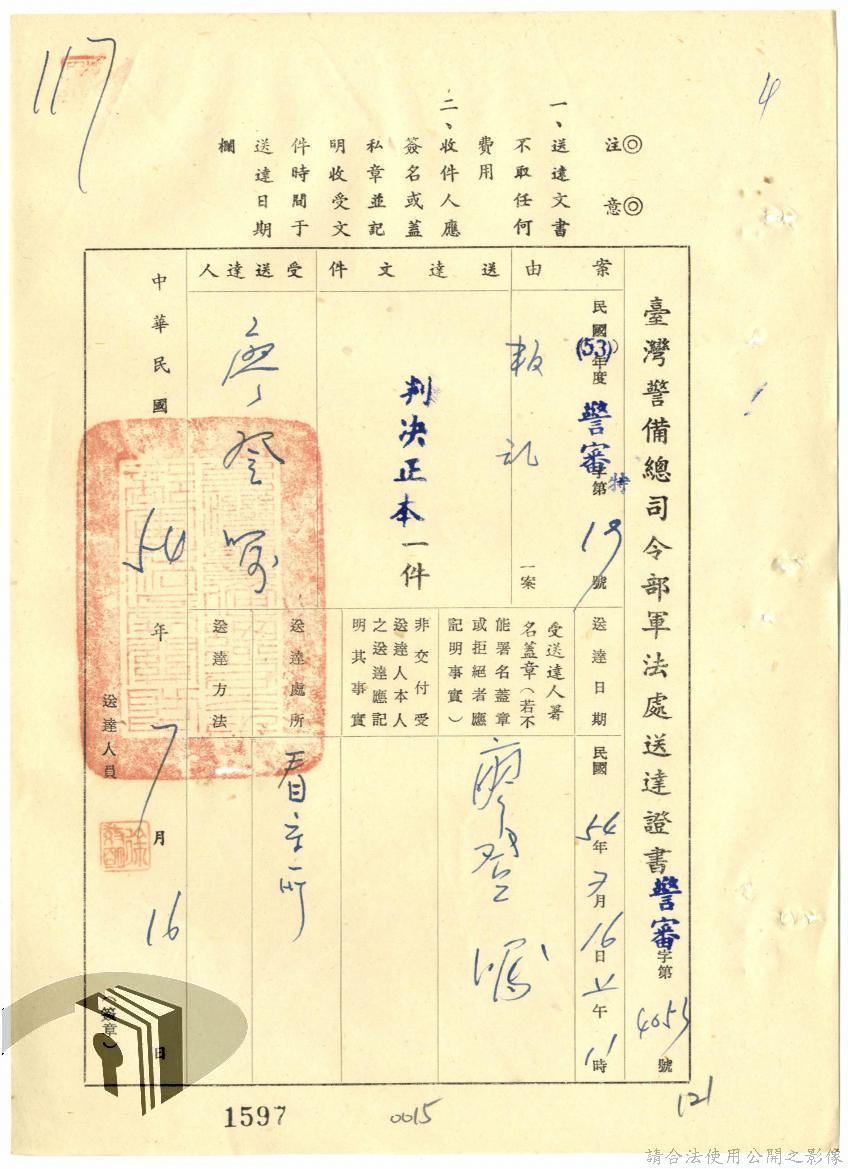 117
4
◎注意◎
一、送達文書
不取任何
費用
二、收件人應
簽名或蓋
私章並記
明收受文
件時間于
送達日期
欄
臺灣警備總司令部軍法處送達證書警審字第4053號
案由
民國(53)年度警審特字第19號
叛亂一案
送達文件
判決正本一件
受送達人
廖登
送達日期
民國54年7月16日上午11時
受送達人署
名蓋章(若不
能署名蓋章
或拒絕者應
記明事實)
廖登
非交付受
送達人本人
之送達應記
明其事實
送達處所
看守所
送達方法
中華民國54年7月16日
送達人員
(簽章)
1597
0015
121
請合法使用公開之影像